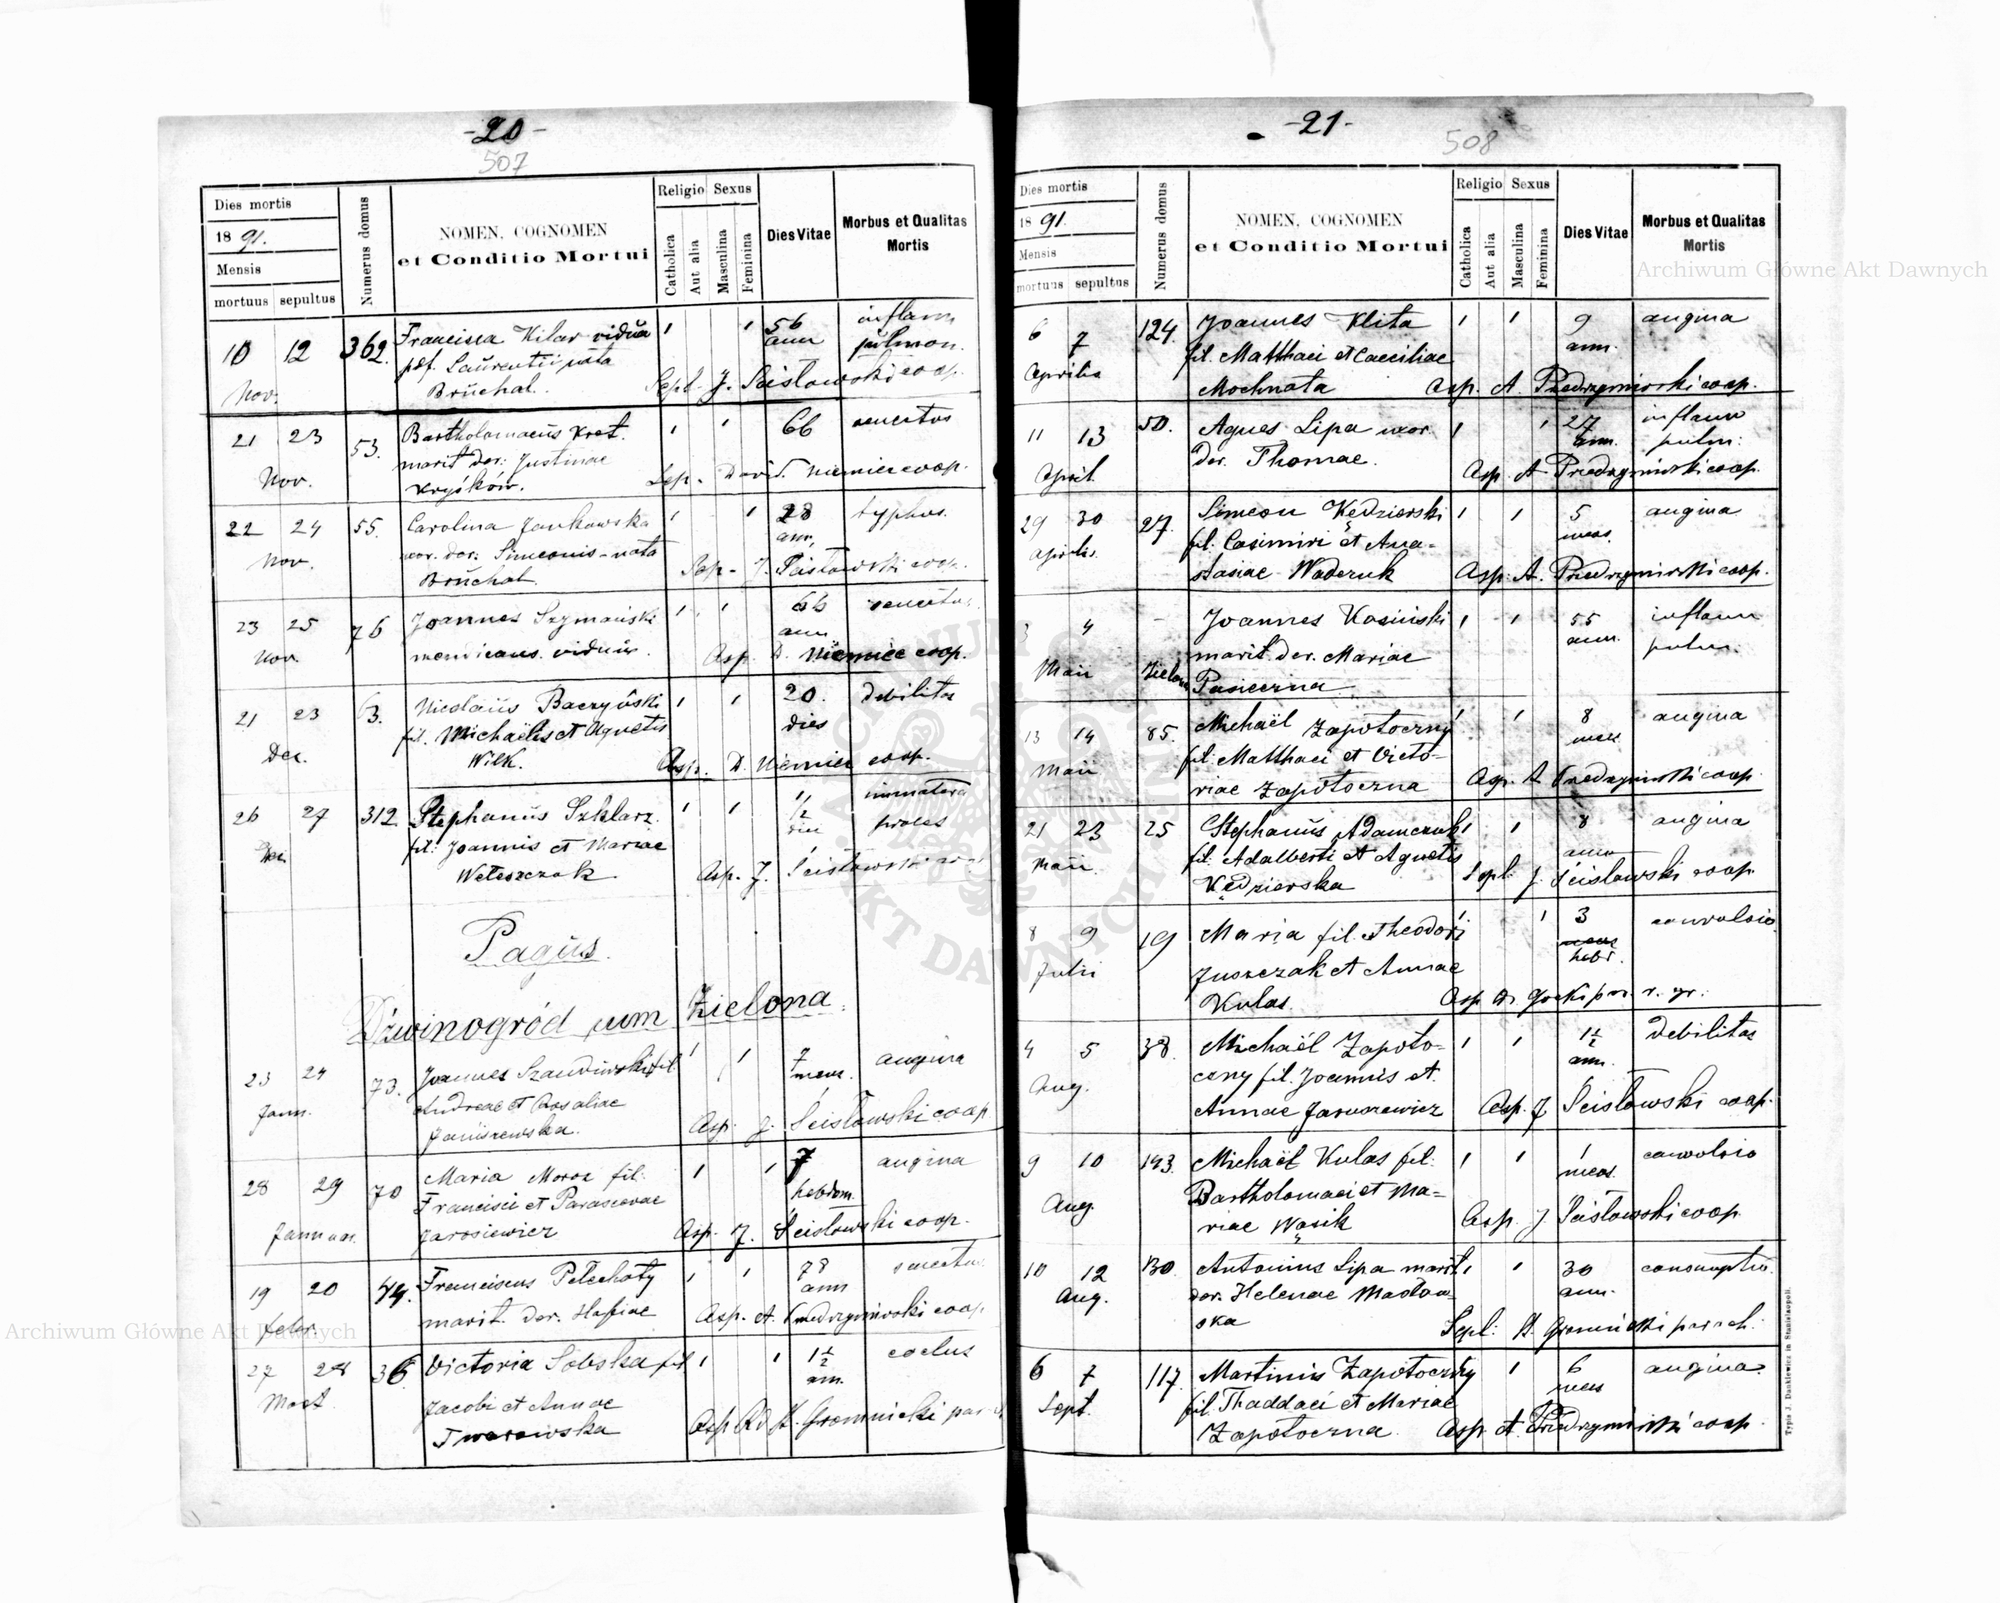 -20-
507
Dies mortis
18 91.
Mensis
mortuus sepultus
Numerus domus
NOMEN, COGNOMEN
et Conditio Mortui
Religio Sexus
Catholica
Aut alia
Masculina
Feminina
Dies Vitae
Morbus et Qualitas
Mortis
10 12 362. Francisca Kilar vidua 56 inflam
ann pulmon.
Nov. Laurentii nata
Bruchal. Sepl. J. Ścisłowski coop.
21 23 53. Bartholomaeus Kret. 66 senectus
marit der. Justinae
Nov. Kryśków. Sep. David Niemiec coop.
22 24 55. Carolina Jankowska 28 typhus.
ann,
Nov. uxor. der. Simeonis nata
Bruchal Sep. J. Ścisłowski coop.
23 25 76 Joannes Szymański 66 senectus
ann
Nov. mendicans viduus. Asp. D. Niemiec coop.
21 23 63. Nicolaus Baczyński 20. debilitas
fil. Michaëlis et Agnetis dies
Dec. Wilk. Asp. D. Niemiec coop.
26 27 312. Stephanus Szklarz 1/2 immatura
fil: Joannis et Mariae proles
Weleszczak Asp. J. Ścisłowski
Pagus.
Dźwinogród cum Zielona.
23 24 73. Joannes Szandwiski fil. 7 angina
mens.
Andreae et Rosaliae
Jann. Januszewska. Asp. J. Ścisłowski coop
28 29 70 Maria Moroz fil. 7 angina
Francisci et Parascevae hebdom.
Jarosiewicz Asp. J. Ścisłowski coop.
19 20 74. Franciscus Pelechaty 78 senectus
ann
febr. marit. der. Hafiae Asp. A. Predrzymirski coop
27 28 36 Victoria Sobska fil. 1 1/2
ann.
Mart Jacobi et Annae Asp. Rd K. Gromnicki par
Tworowska
-21-
508
Dies mortis
18 91.
Mensis
mortuus sepultus
Numerus domus
NOMEN, COGNOMEN
et Conditio Mortui
Religio Sexus
Catholica
Aut alia
Masculina
Feminina
Dies Vitae
Morbus et Qualitas
Mortis
6 7 124. Joannes Klita 9 angina
fil. Matthaei et Caeciliae ann.
Aprilis Mochnata Asp. A. Predrzymirski coop.
11 13 50. Agnes Lipa uxor 27 inflam
der. Thomae. ann. pulm:
April. Asp. A. Predrzymirski coop.
29 30 27. Simeon Kędzierski 5 angina
Aprilis. fil. Casimiri et Ana- mens.
stasiae Waderuk Asp. A. Predrzymirski coop.
3 4 - Joannes Kosiński 55 inflam
marit. der. Mariae ann. pulm.
Maii Zielona Pasieczna
13 14 85. Michaël Zapotoczny 8 angina
fil. Matthaei et Victo- mens
Maii riae Zapotoczna Asp. A. Predrzymirski coop
21 23 25 Stephanus Adamczuk 8 angina
fil. Adalberti et Agnetis ann
Maii. Kędzierska Sepl. J. Ścisłowski coop.
8 9 19 Maria fil. Theodori 3 convulsio
mens
hebd.
Julii Juszczak et Annae
Kulas. Asp. par. r. gr.
4 5 38. Michaël Zapoto- 1 1/2 debilitas
czny fil. Joannis et ann.
Aug. Annae Jaruszewicz Asp. J. Ścisłowski coop.
9 10 143. Michaël Kulas fil. 1 convulsio
Bartholomaei et Ma- mens.
Aug. riae Wąsik Asp. J. Ścisłowski coop
10 12 130. Antonius Lipa marit. 30 consumptio.
Aug. der. Helenae Madow- ann.
ska Sepl. K. Gromnicki paroch.
6 7 117. Martinus Zapotoczny 6 angina.
mens
Sept. fil. Thaddaei et Mariae
Zapotoczna. Asp. A. Predrzymirski coop.
Typis J. Dankiewicz in Stanislaopoli.
Archiwum Główne Akt Dawnych
Archiwum Główne Akt Dawnych